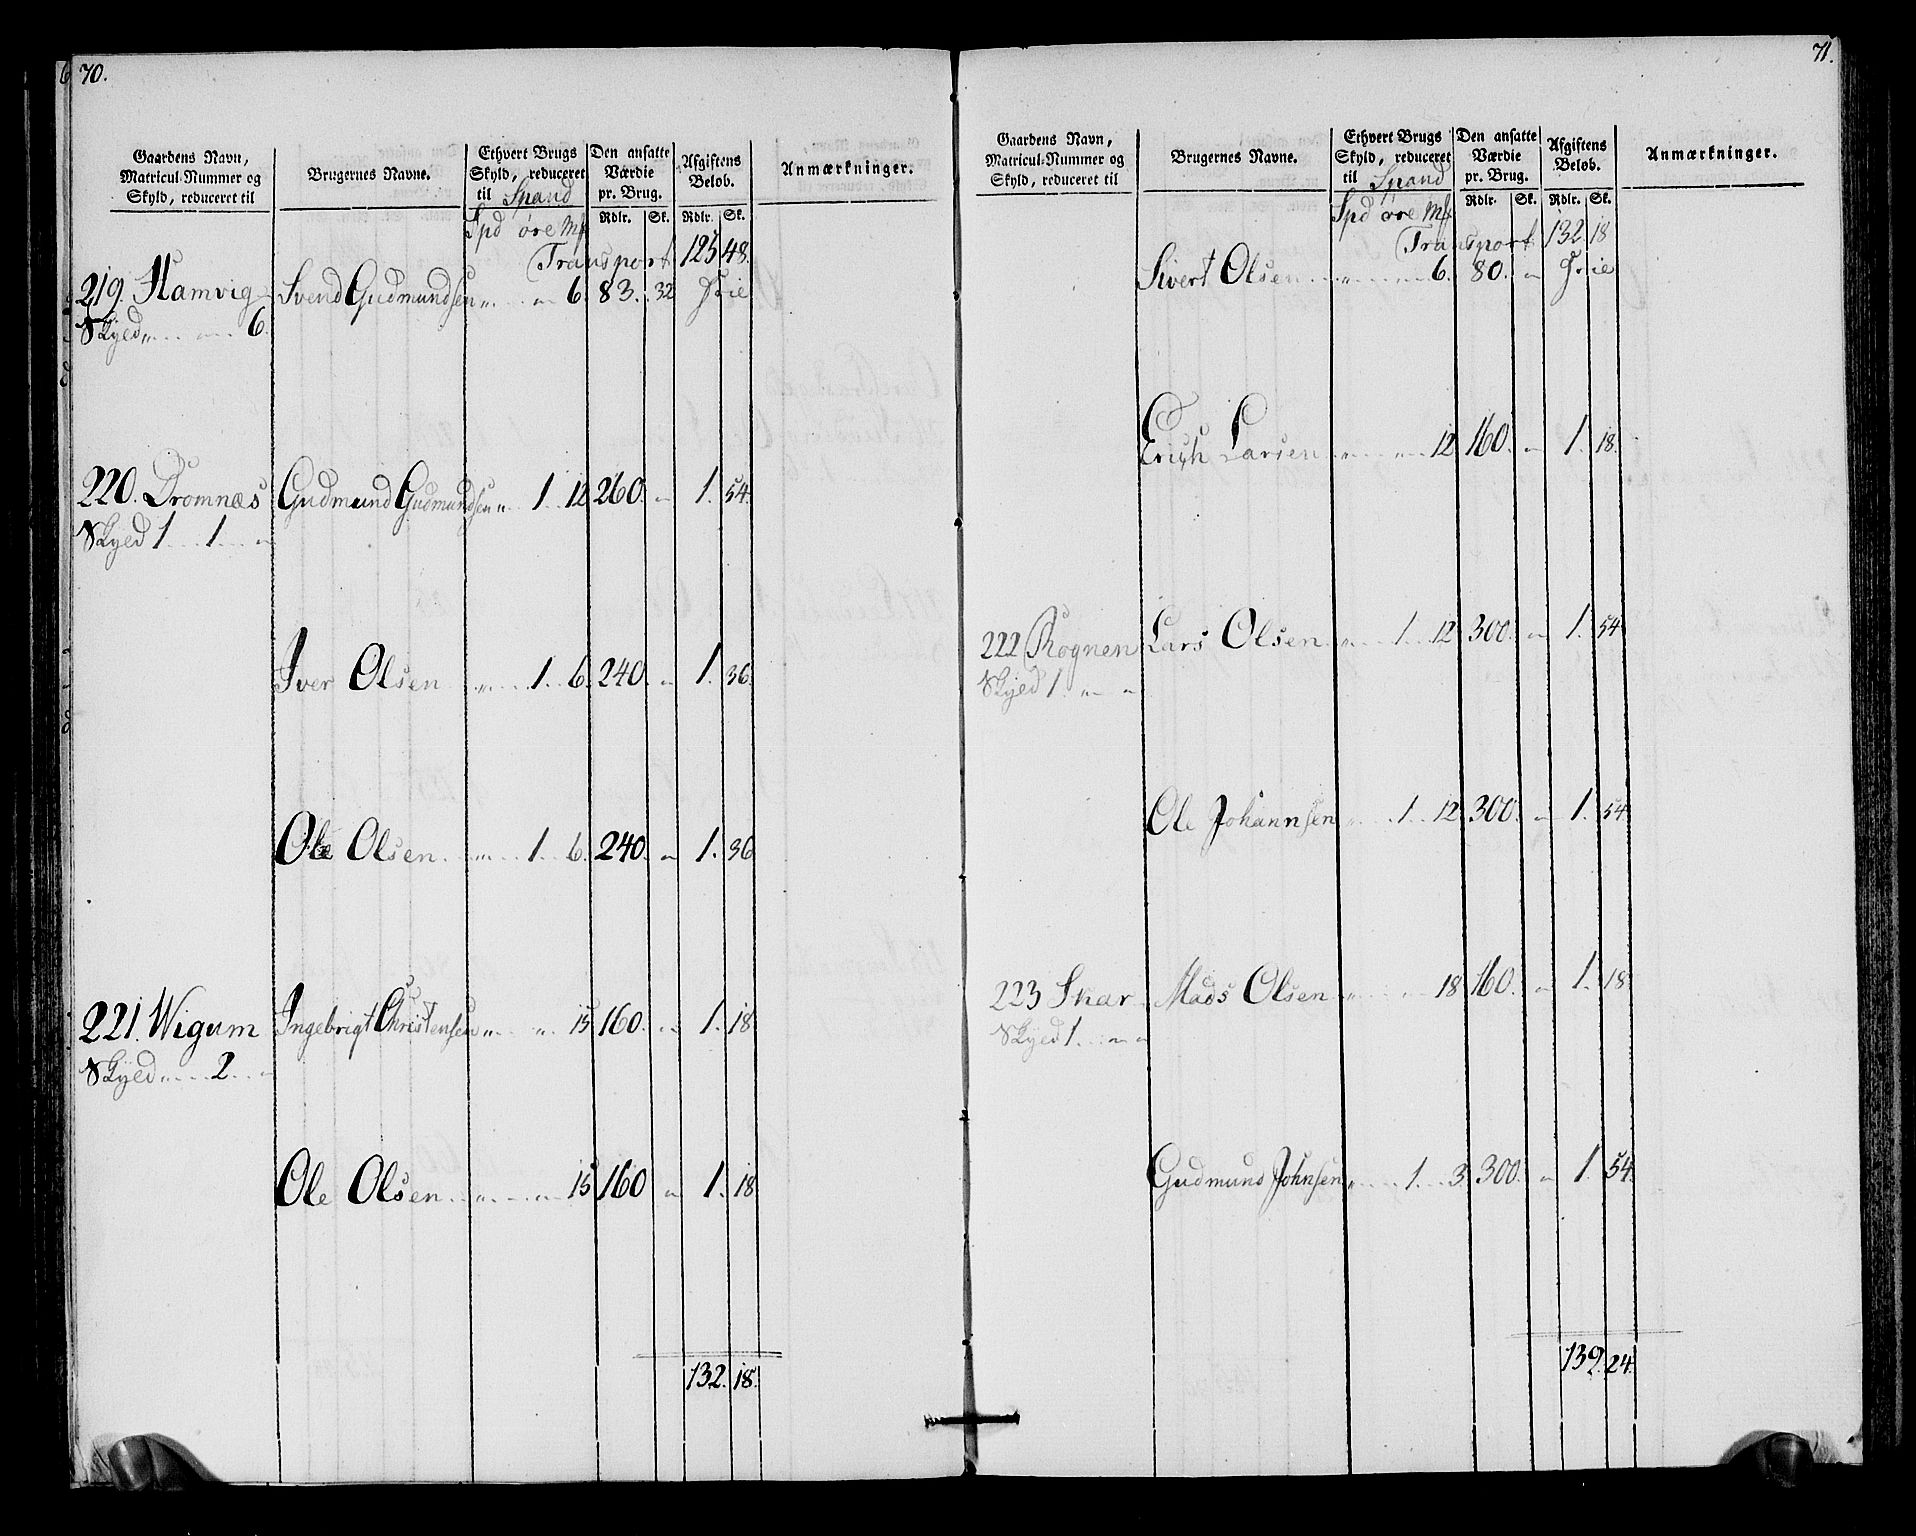 70.
Gaardens Navn, Matricul-Nummer og Skyld, reduceret til
Brugernes Navne.
Ethvert Brugs Skyld, reduceret til Spand
Den ansatte Værdie pr. Brug.
Afgiftens Beløb.
Anmærkninger.
Rdlr. Sk. Rdlr. Sk.
Spd øre Mk
Transport 125 48.
219. Hamvig Svend Gudmundsen „ „ 6. 83. 32 Frie
Skyed „ „ 6.
220. Dromnæs Gudmund Gudmundsen „ 1. 12 260. „ 1. 54.
Skyed 1 1 „
Iver Olsen „ 1. 6. 240. „ 1. 36.
Ole Olsen „ 1. 6. 240. „ 1. 36
221. Wigum Ingebrigt Christensen „ „ 15 160. „ 1. 18
Skyed „ 2. „
Ole Olsen „ „ 15 160 „ 1. 18
132. 18.
71.
Gaardens Navn, Matricul-Nummer og Skyld, reduceret til
Brugernes Navne.
Ethvert Brugs Skyld, reduceret til Spand
Den ansatte Værdie pr. Brug.
Afgiftens Beløb.
Anmærkninger.
Rdlr. Sk. Rdlr. Sk.
Spd øre Mk
Transport 132 18
Sivert Olsen „ „ 6. 80. „ Frie
Erich Larsen „ „ 12 160. „ 1. 18.
222 Rognen Lars Olsen „ 1. 12 300. „ 1. 54
Skyed 1. „ „
Ole Johannsen „ 1. 12 300. „ 1. 54
223 Skar Mads Olsen „ „ 18 160. „ 1. 18
Skyed 1. „ „
Gudmund Johnsen „ 1. 3. 300. „ 1. 54.
139. 24.